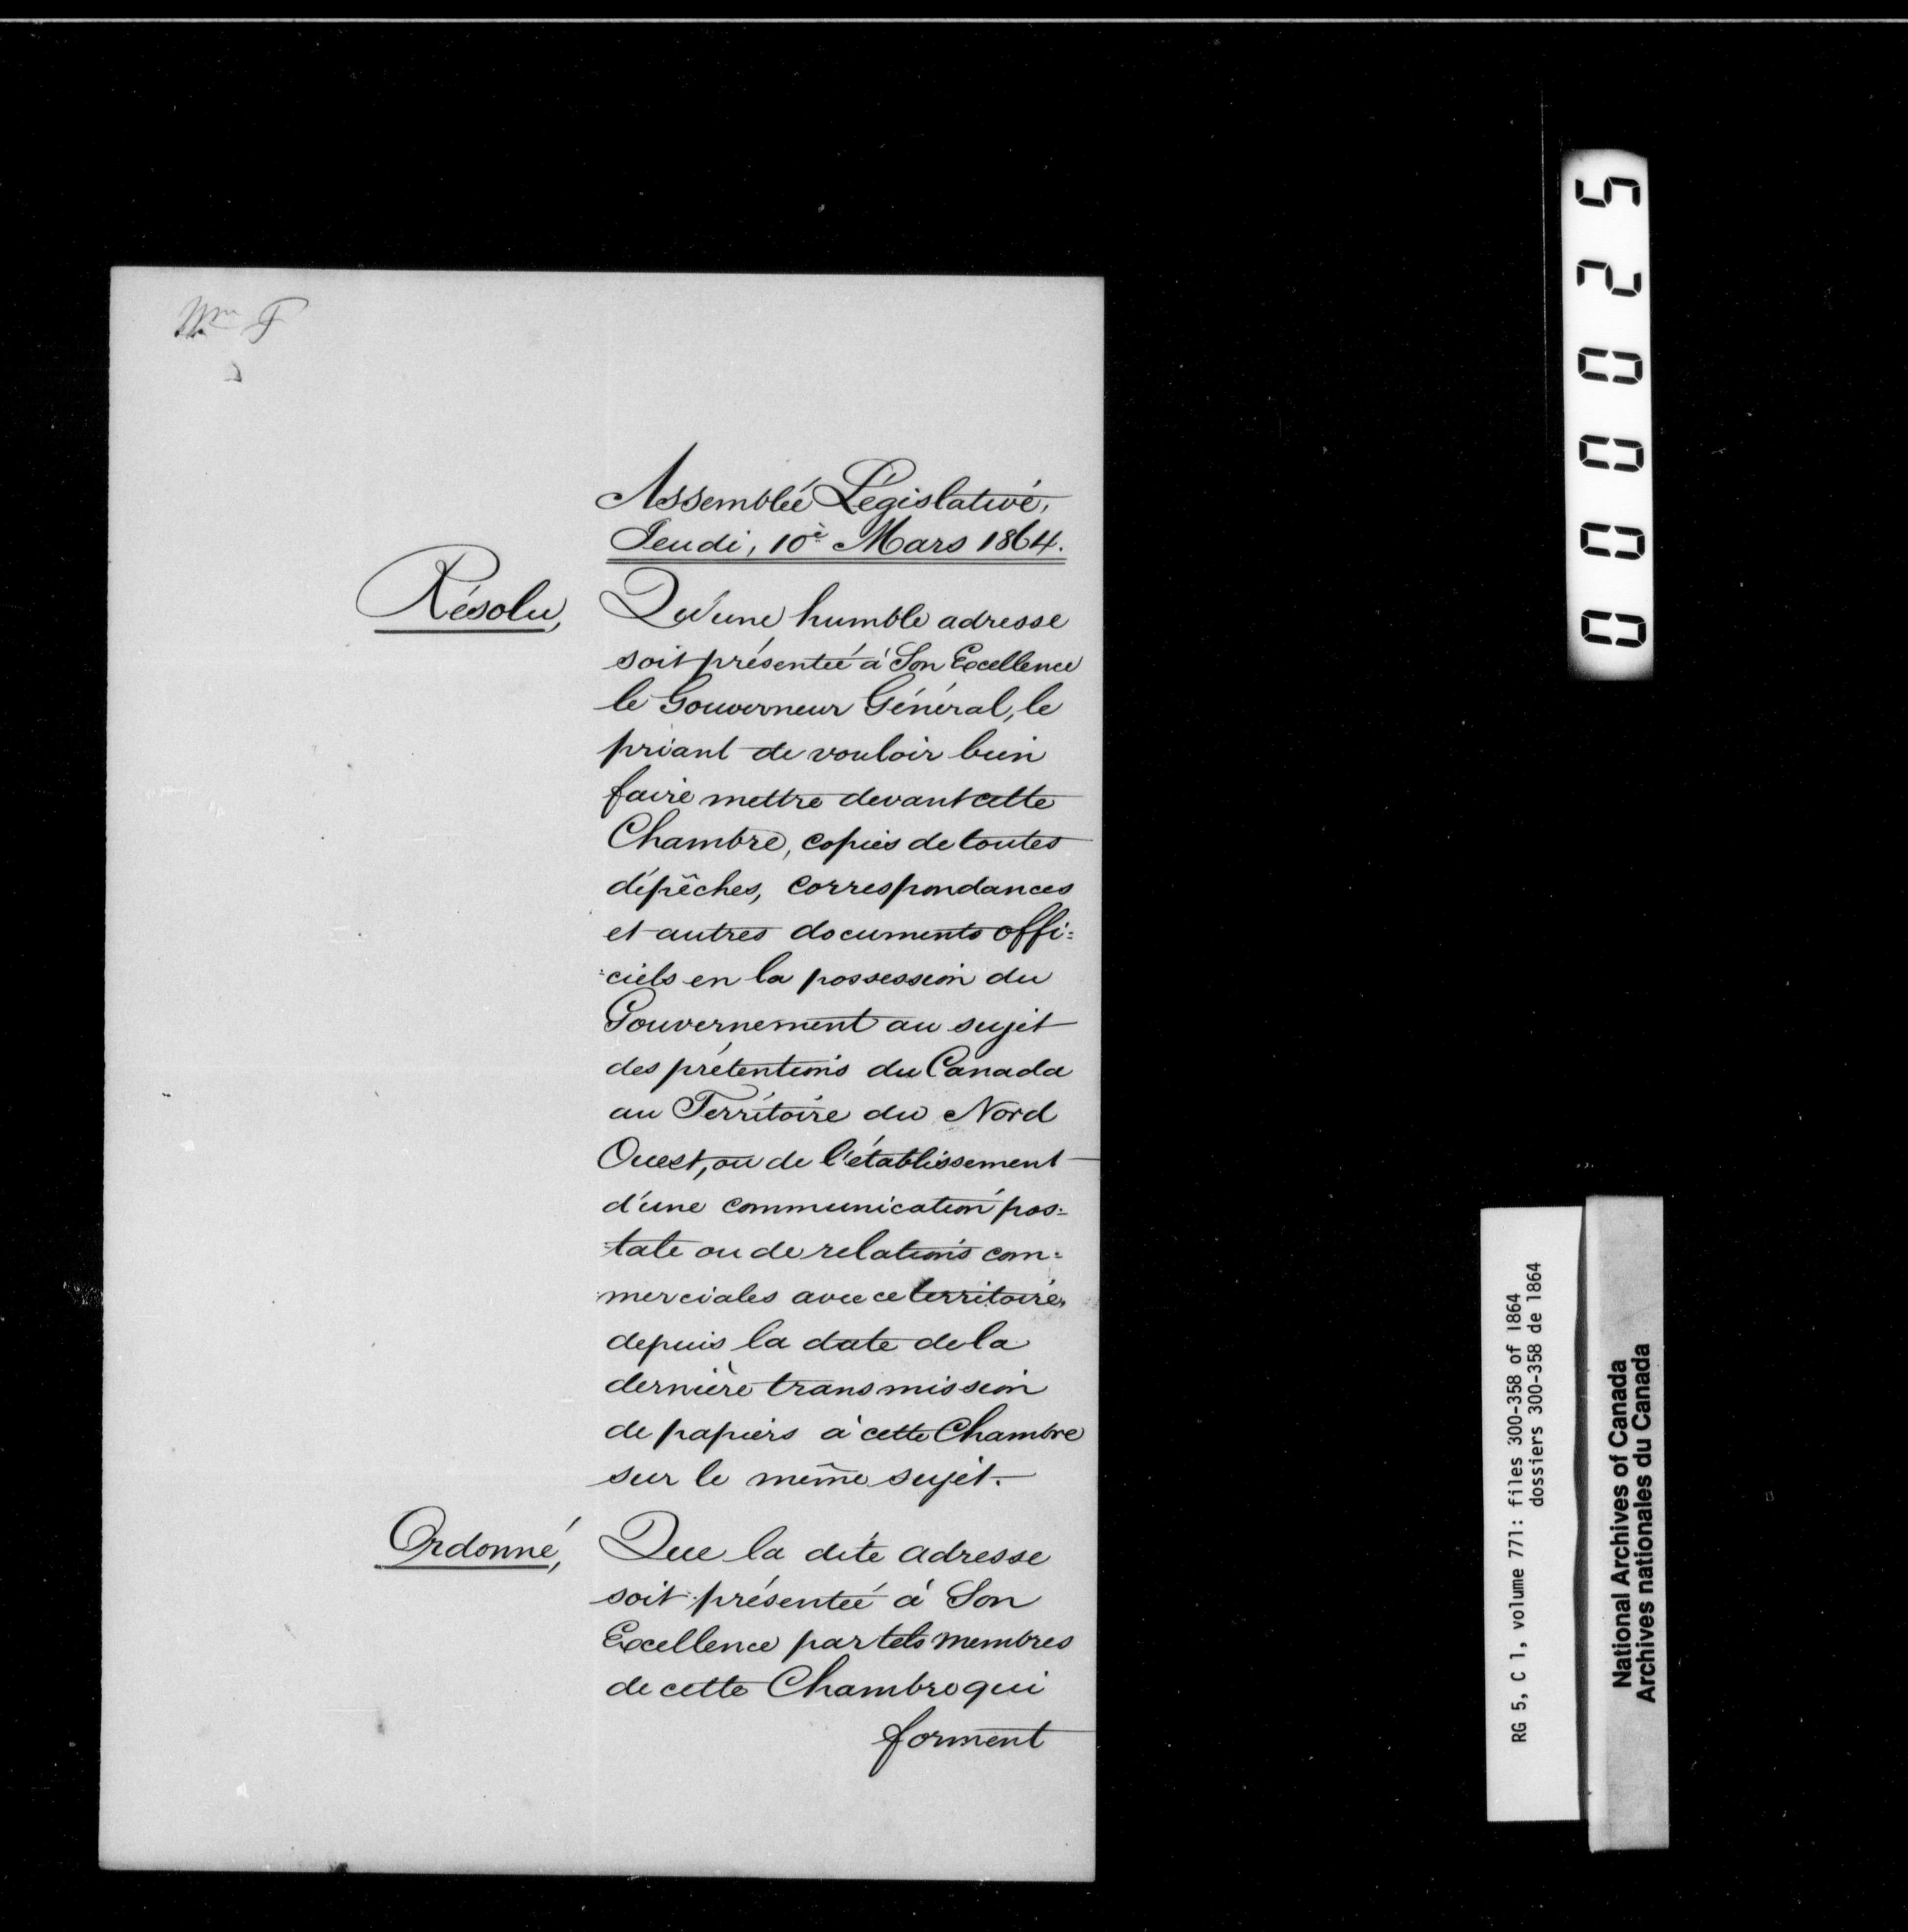 Wm F
Assemblée Législative,
Jeudi, 10è Mars 1864.
Résolu, Qu'une humble adresse
soit présentée à Son Excellence
le Gouverneur Général, le
priant de vouloir bien
faire mettre devant cette
Chambre, copies de toutes
dépêches, correspondances
et autres documents offi=
=ciels en la possession du
Gouvernement au sujet
des prétentions du Canada
au Territoire du Nord
Ouest, ou de l'établissement
d'une communication pos=
=tale ou de relations com=
=merciales avec ce territoire,
depuis la date de la
dernière transmission
de papiers à cette Chambre
sur le même sujet.
Ordonné, Que la dite adresse
soit présentée à Son
Excellence par tels membres
de cette Chambre qui
forment
000025
RG 5, C 1, volume 771: files 300-358 of 1864
dossiers 300-358 de 1864
National Archives of Canada
Archives nationales du Canada